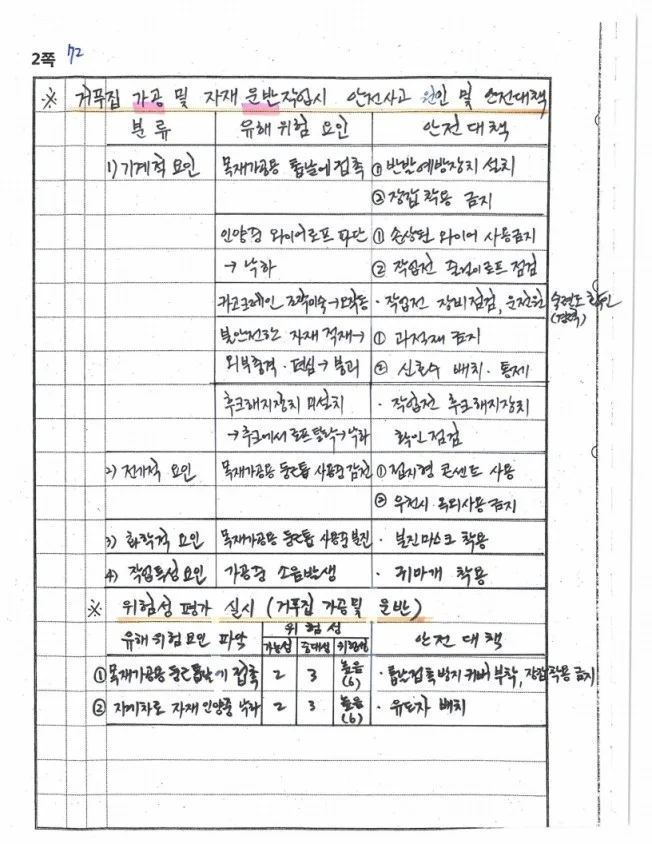 2쪽 72
※ 거푸집 가공 및 자재 운반작업시 안전사고 원인 및 안전대책
분류 유해위험요인 안전대책
1) 기계적 요인 목재가공용 톱날에 접촉 ① 반발예방장치 설치
② 장갑 착용 금지
인양중 와이어로프 파단 ① 손상된 와이어 사용금지
→ 낙하 ② 작업전 와이어로프 점검
카고크레인 조작미숙→오작동 · 작업전 장비점검, 운전원 숙련도 확인
(경력)
불안전한 자재 적재→ ① 과적재 금지
외부충격·편심→붕괴 ② 신호수 배치·통제
후크해지장치 미설치 · 작업전 후크해지장치
→후크에서 로프탈락→낙하 확인점검
2) 전기적 요인 목재가공용 둥근톱 사용중 감전 ① 접지형 콘센트 사용
② 우천시 옥외사용금지
3) 화학적 요인 목재가공용 둥근톱 사용중 분진 · 분진마스크 착용
4) 작업특성요인 가공중 소음발생 · 귀마개 착용
※ 위험성 평가 실시 (거푸집 가공 및 운반)
유해위험요인 파악 위험성 안전대책
가능성 중대성 위험성
① 목재가공용 둥근톱날에 접촉 2 3 높음 (6) · 톱날접촉방지 커버 부착, 장갑착용 금지
② 지게차로 자재 인양중 낙하 2 3 높음 (6) · 유도자 배치